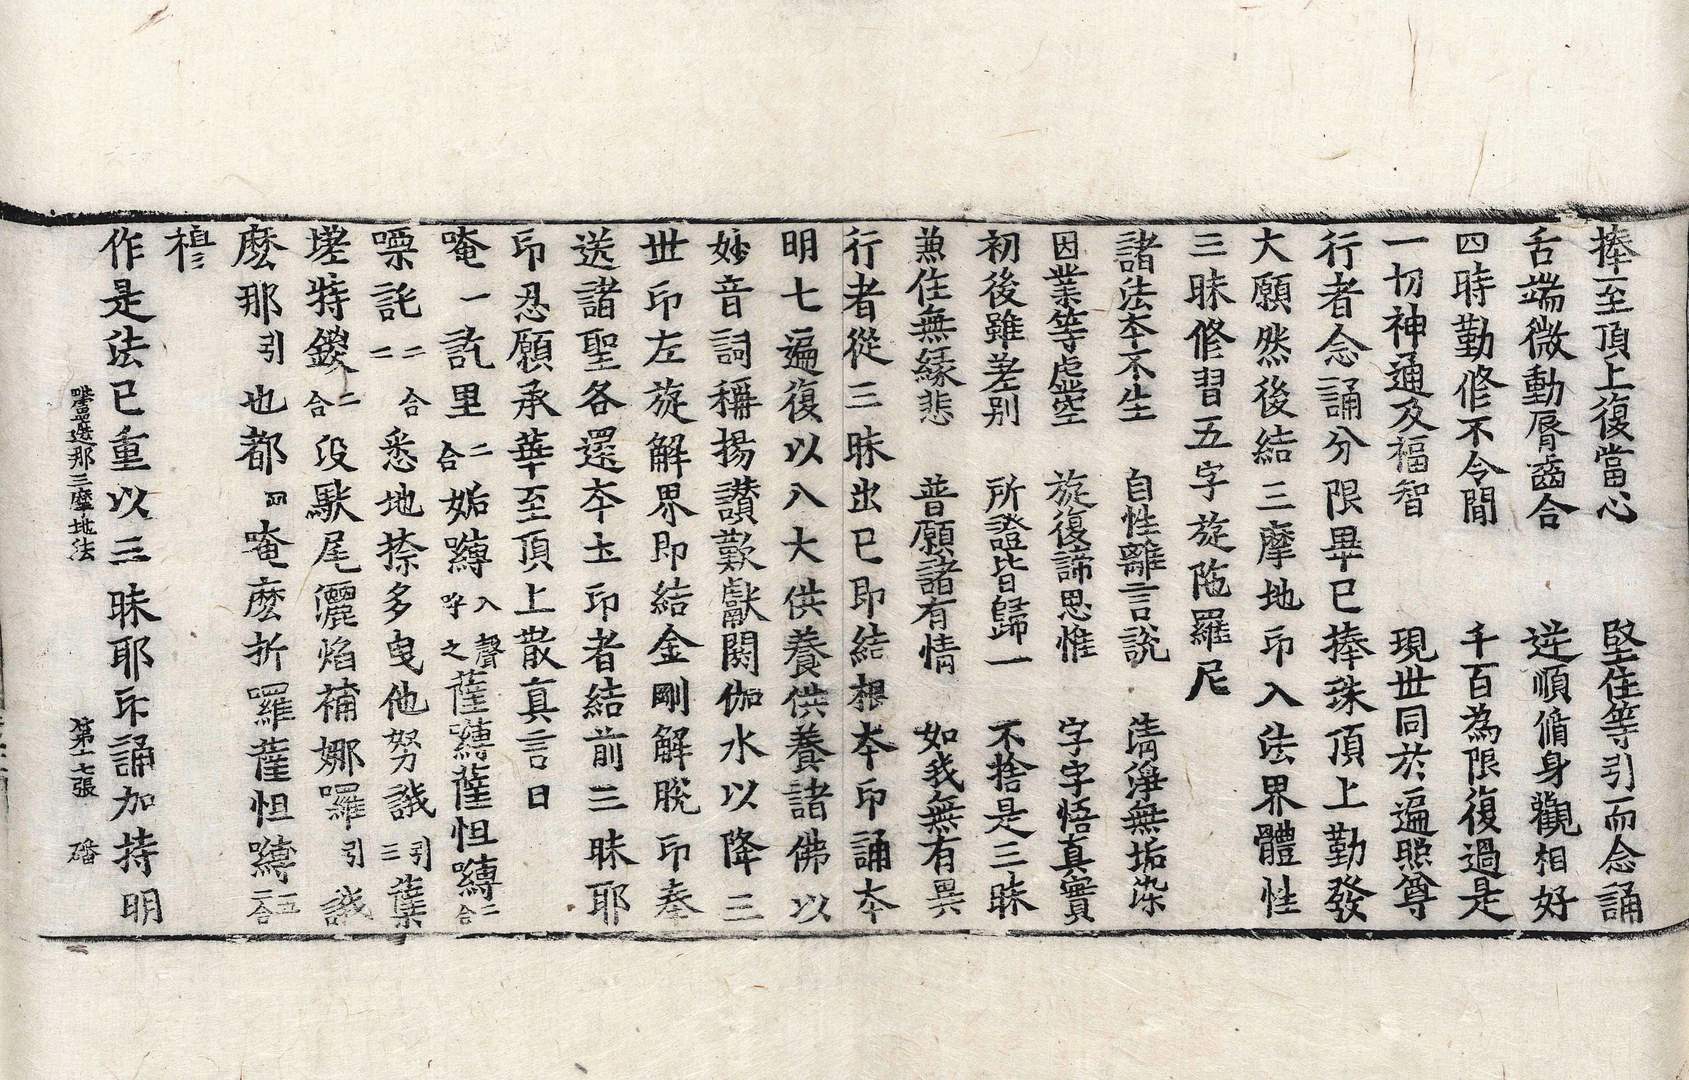 捧至頂上復當心　堅住等引而念誦
舌端微動脣齒合　逆順循身觀相好
四時勤修不令間　千百為限復過是
一切神通及福智　現世同於遍照尊
行者念誦分限畢已捧珠頂上勤發
大願然後結三摩地印入法界體性
三昧修習五字旋陁羅尼
諸法本不生　自性離言說　清淨無垢染
因業等虛空　旋復諦思惟　字字悟真實
初後雖差別　所證皆歸一　不捨是三昧
兼住無緣悲　普願諸有情　如我無有異
行者從三昧出已即結根本印誦本
明七遍復以八大供養供養諸佛以
妙音詞稱揚讚歎獻閼伽水以降三
世印左旋解界即結金剛解脫印奉
送諸聖各還本土印者結前三昧耶
印忍願承華至頂上散真言曰
唵一訖里二合妬嚩入聲呼之薩嚩薩怛嚩二合
㗚託二合二悉地捺多曳他努誐引三蘗
瑳特鑁二合沒馱尾灑焰補娜囉引誐
麼那引也都四唵麼折囉薩怛嚩二合五
穆
作是法已重以三昧耶印誦加持明
毗盧遮那三摩地法　第十七張　磻